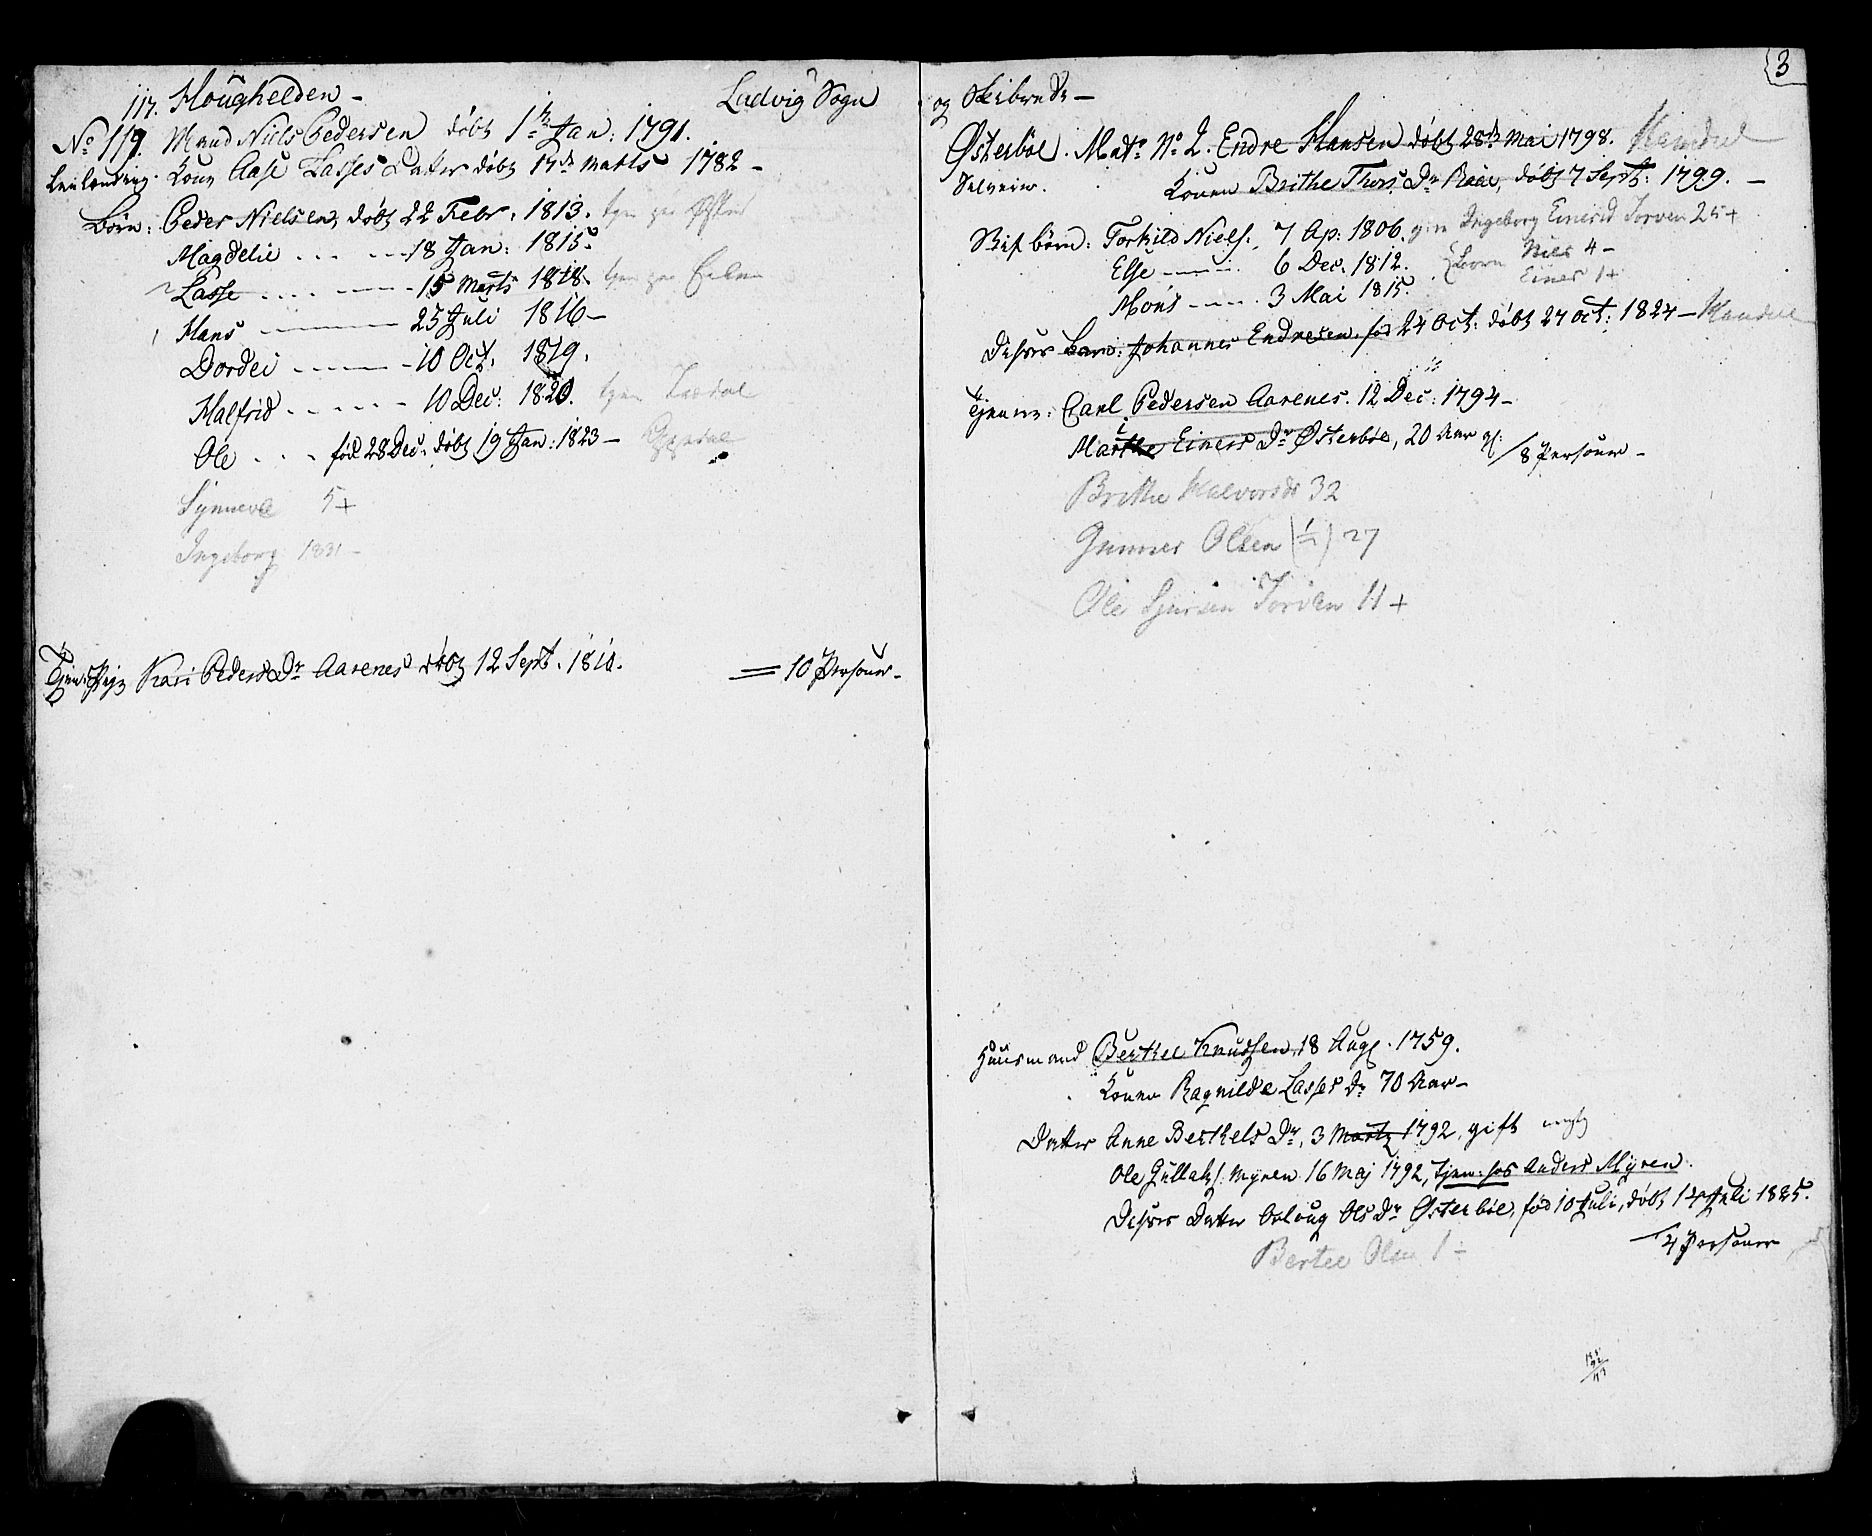 117. Houghelden – Ladvig Sogn
No 119 Mand Niels Pedersen døbt 1te Jan: 1791.
Leilænding. Kone Aase Lasses Datter døbt 17de Marts 1782 –
Børn: Peder Nielsen, døbt 22 Febr. 1813. tjen
Magdelie 18 Jan: 1815.
Lasse 15 Marts 1818. tjen
Hans 25 Juli 1816 –
Dordei 10 Oct. 1819.
Halfrid 10 Dec: 1820. tjen
Ole . . . fød 28 Dec. døbt 19 Jan: 1823 –
Synneve 5 +
Ingeborg 1831 –
Kari Peders Dr Aarenes døbt 12 Sept. 1810. = 10 Personer –
3
og Skibrede –
Østerbøe. Matr No 2. Endre Hansen døbt 28de Mai 1798.
Selveier. Konen Brithe Thors Dr døbt 7 Sept: 1799. –
Stif børn: Torkild Niels: 7 Ap: 1806. Ingeborg 25 +
Else 6 Dec. 1812. Børn Niels 4 –
Mons 3 Mai 1815. Einer 1 +
Disses barn: Johannes Endresen fød 24 Oct: døbt 27 Oct: 1824 –
Tjenere: Carl Pedersen Aarenes. 12 Dec: 1794 –
Marthe Einers Dr Østerbøe, 20 Aar gl: / 8 Personer –
Brithe Halvorsdr 32
Gunner Olsen 27
Ole 11 +
Huusmand Berthel Knudsen, 18 Aug. 1759.
Konen Ragnilde Lasses Dr 70 Aar –
Datter Anne Berthels Dr, 3 Martz 1792, gift
Ole Gullaks: Myren 16 Maj 1792, tjen: hos Anders Myren.
Disses Datter Ols Dr Østerbøe, fød 10 Juli, døbt 14 Juli 1825.
/ 4 Personer
Bertel Olsen 1